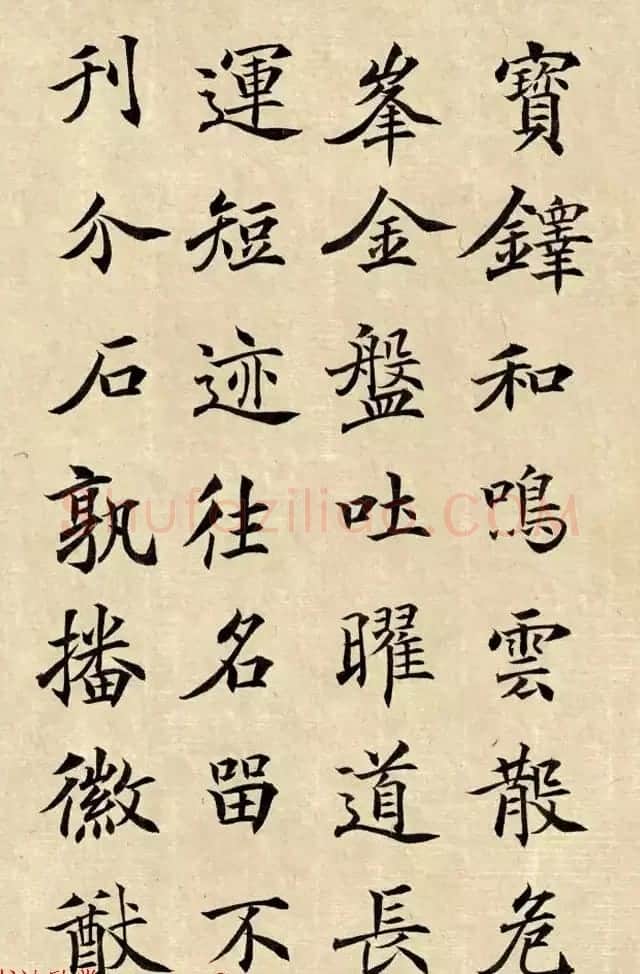 寶鐸和鳴雲散危
峯金盤吐曜道長
運短迹往名留不
刊介石孰播徽猷
shufaziliao.COM